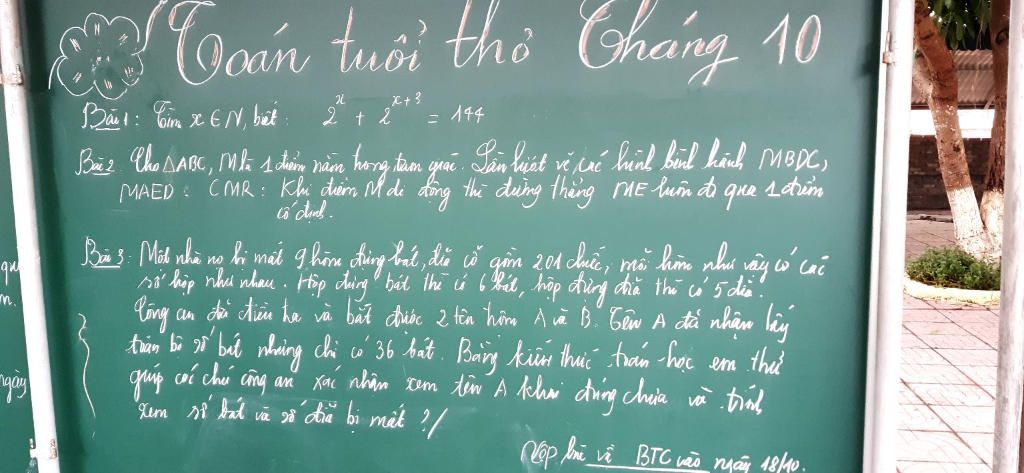 Toán tuổi thơ Tháng 10
Bài 1: Tìm x ∈ N, biết: 2^x + 2^(x+3) = 144
Bài 2 Cho △ABC, M là 1 điểm nằm trong tam giác. Lần lượt vẽ các hình bình hành MBDC,
MAED. CMR: Khi điểm M di động thì đường thẳng ME luôn đi qua 1 điểm
cố định.
Bài 3: Một nhà nọ bị mất 9 hòm đựng bát, đĩa cổ gồm 201 chiếc, mỗi hòm như vậy có các
số hộp như nhau. Hộp đựng bát thì có 6 bát, hộp đựng đĩa thì có 5 đĩa.
Công an đã điều tra và bắt được 2 tên trộm A và B. Tên A đã nhận lấy
toàn bộ số bát nhưng chỉ có 36 bát. Bằng kiến thức toán học em thử
giúp các chú công an xác nhận xem tên A khai đúng chưa và tính
xem số bát và số đĩa bị mất?/
Nộp bài về BTC vào ngày 18/10.
qu
n.
ngày